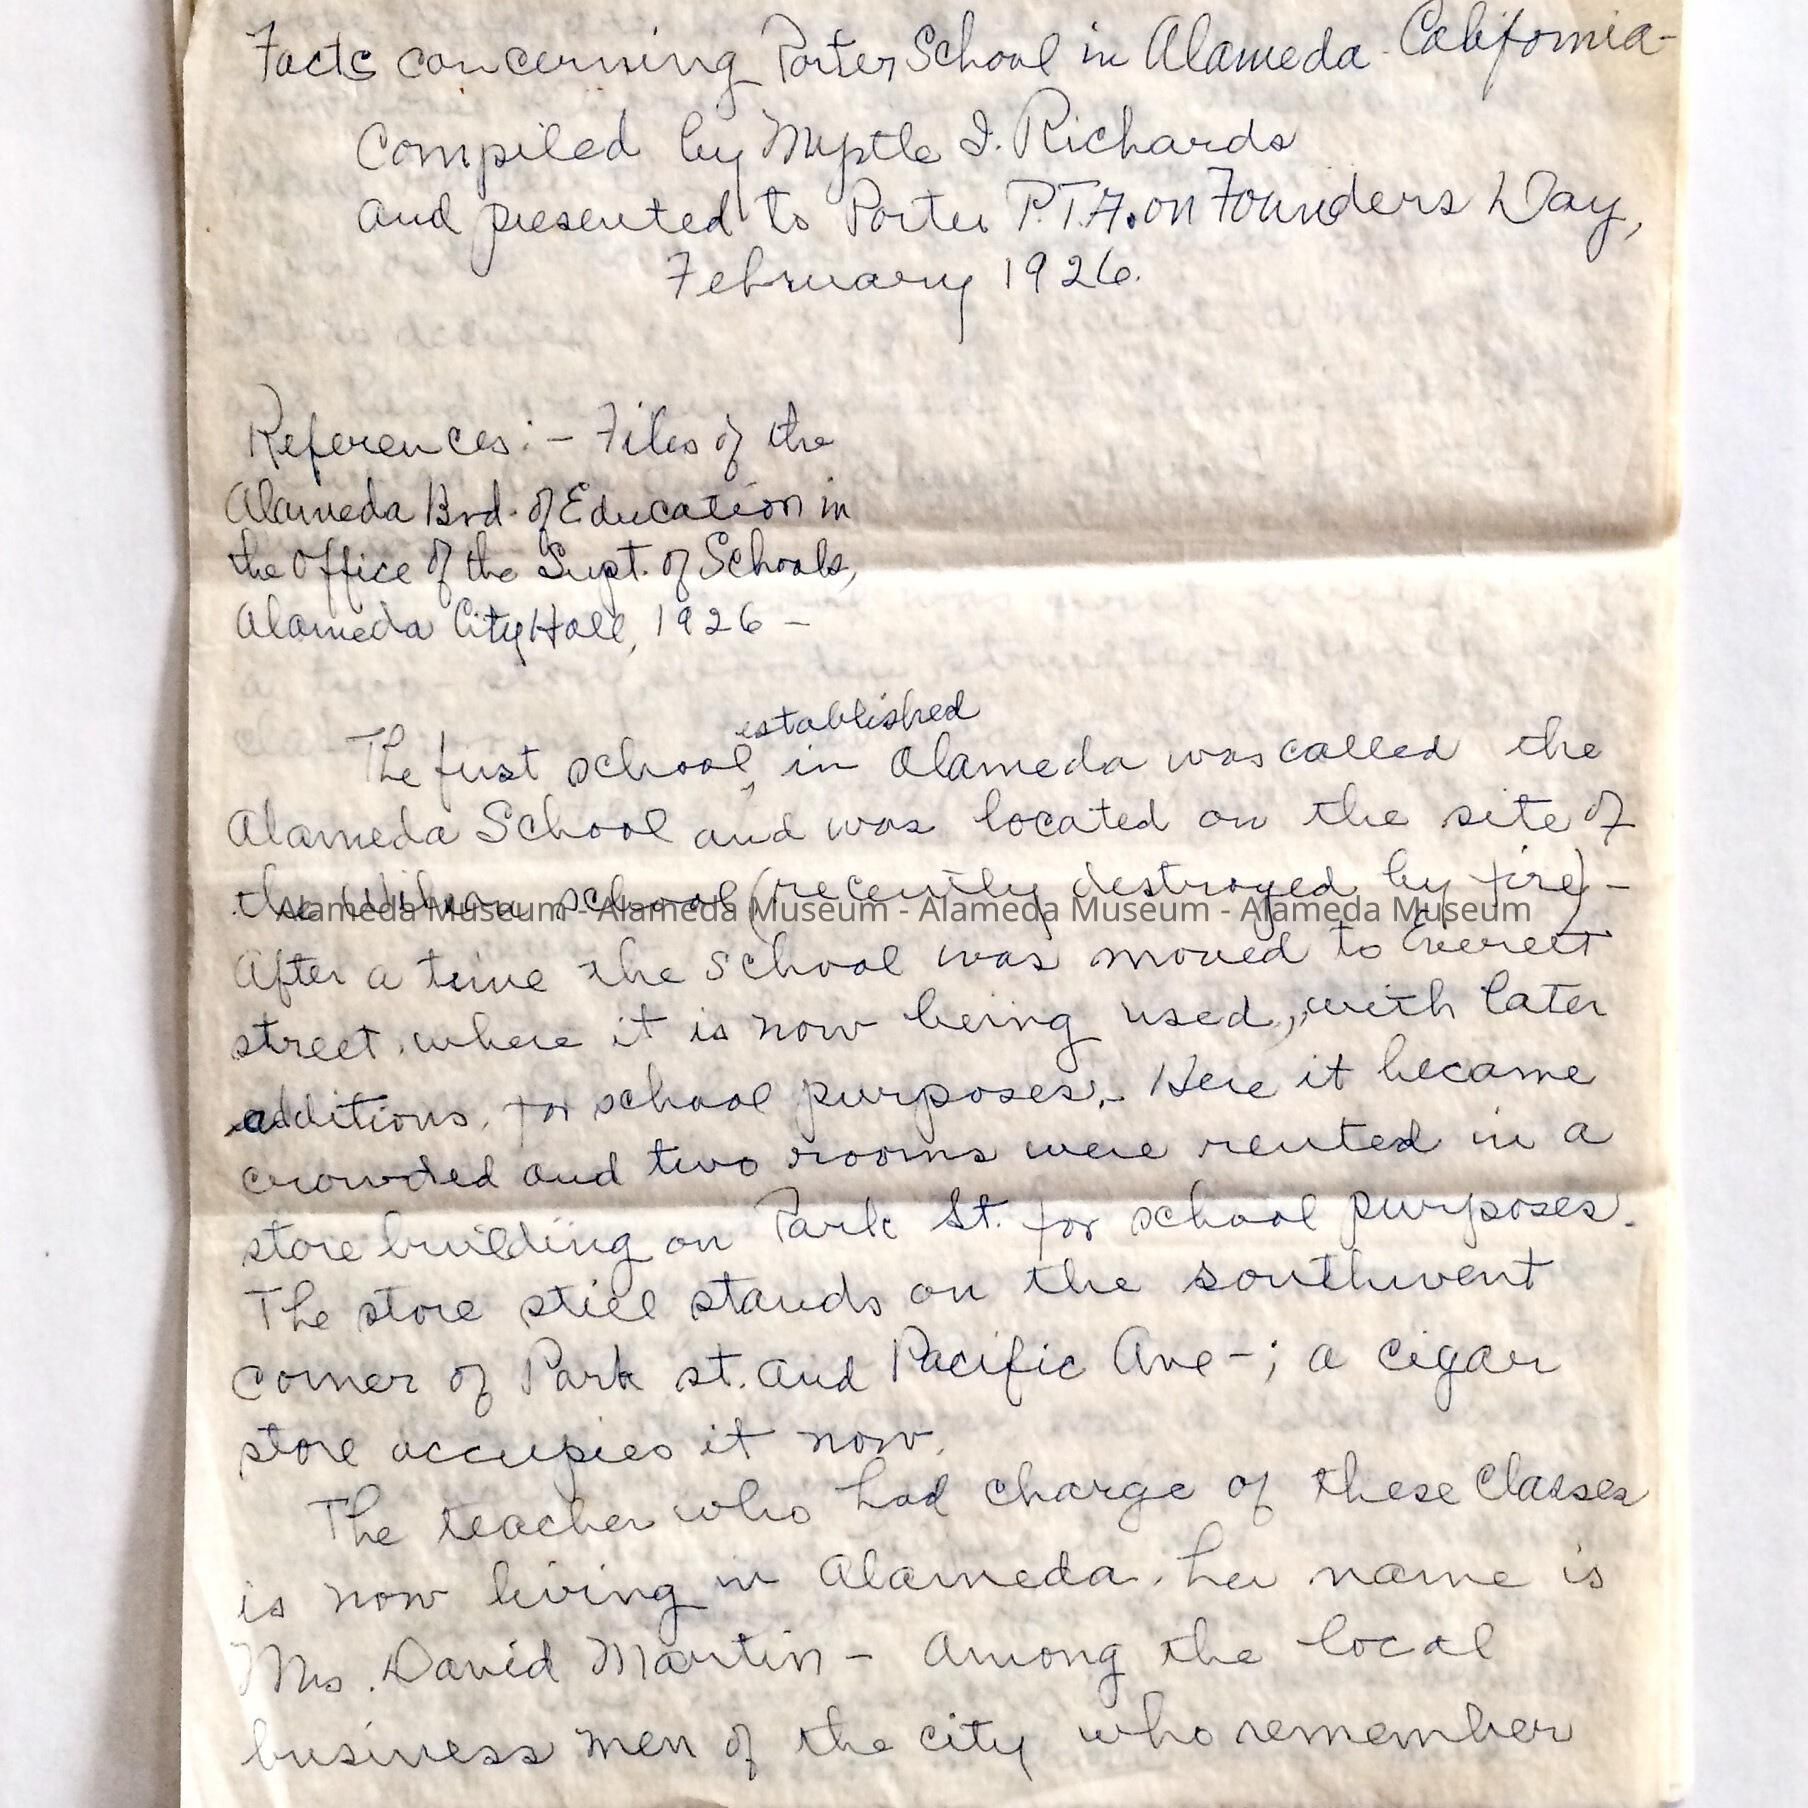 Facts concerning Porter School in Alameda - California -
Compiled by Myrtle I. Richards
and presented to Porter P.T.A. on Founders Day,
February 1926.
References: - Files of the
Alameda Brd. of Education in
the Office of the Supt. of Schools,
Alameda City Hall, 1926 -
established
The first school ‸ in Alameda was called the
Alameda School and was located on the site of
the Wilson school (recently destroyed by fire) -
Alameda Museum - Alameda Museum - Alameda Museum - Alameda Museum
After a time the school was moved to Everett
street, where it is now being used, with later
additions, for school purposes. - Here it became
crowded and two rooms were rented in a
store building on Park St. for school purposes.
The store still stands on the southwest
corner of Park st. and Pacific Ave - ; a cigar
store occupies it now.
The teacher who had charge of these classes
is now living in Alameda, her name is
Mrs. David Martin - Among the local
business men of the city who remember